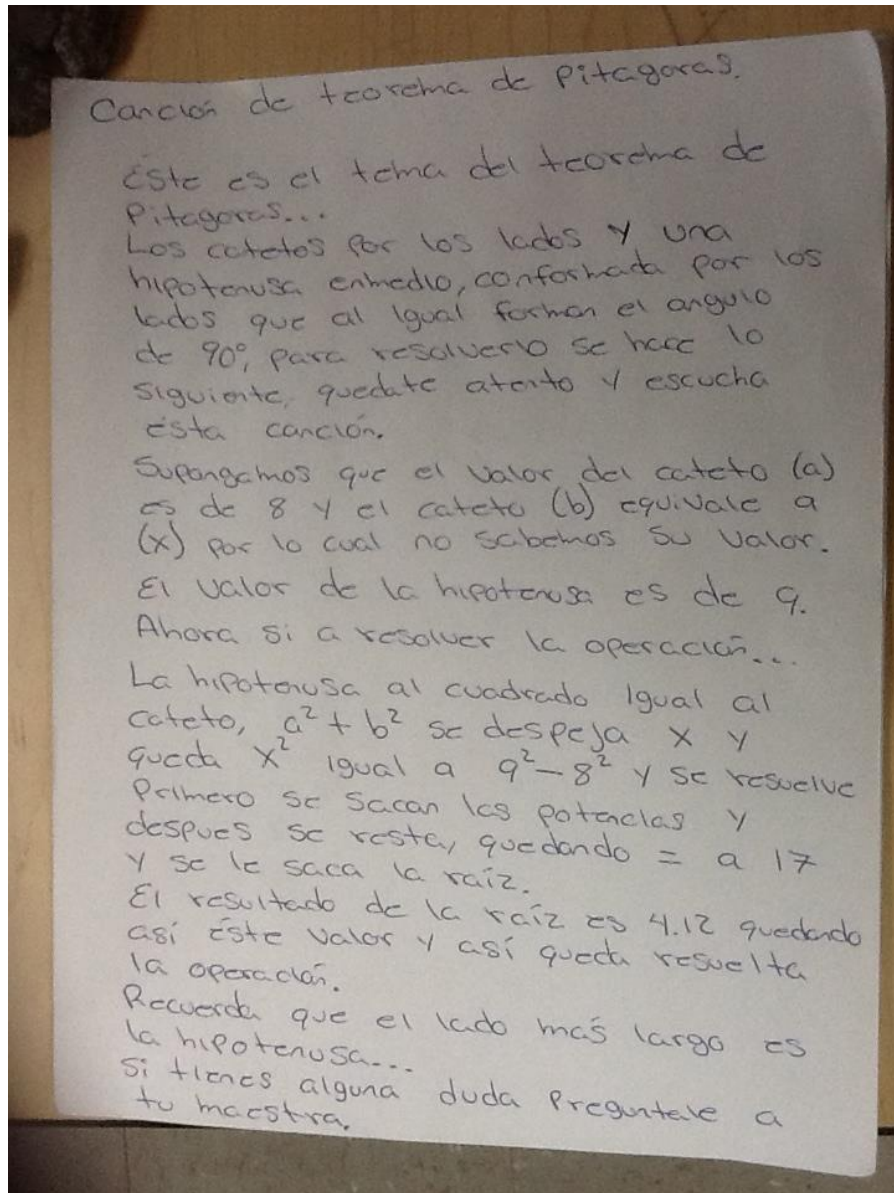 Canción de teorema de Pitagoras.
éste es el tema del teorema de
Pitagoras...
Los catetos por los lados y una
hipotenusa enmedio, conformada por los
lados que al igual forman el angulo
de 90°, para resolverlo se hace lo
siguiente, quedate atento y escucha
ésta canción.
Supongamos que el valor del cateto (a)
es de 8 y el cateto (b) equivale a
(x) por lo cual no sabemos su valor.
El valor de la hipotenusa es de 9.
Ahora si a resolver la operación...
La hipotenusa al cuadrado igual al
cateto, a² + b² se despeja x y
queda x² igual a 9² - 8² y se resuelve
Primero se sacan las potencias y
despues se resta, quedando = a 17
y se le saca la raíz.
El resultado de la raíz es 4.12 quedando
así éste valor y así queda resuelta
la operación.
Recuerda que el lado más largo es
la hipotenusa...
Si tienes alguna duda Preguntale a
tu maestra.